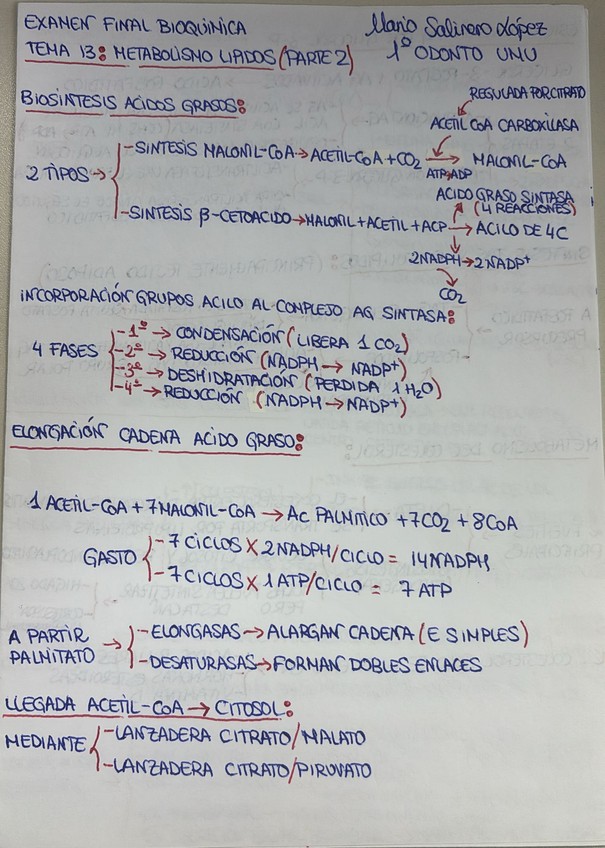 EXAMEN FINAL BIOQUÍNICA
Mario Salinero López
TEMA 13: METABOLISMO LIPIDOS (PARTE 2)
1º ODONTO UNU
BIOSÍNTESIS ACIDOS GRASOS:
REGULADA POR CITRATO
ACETIL COA CARBOXILASA
2 TIPOS →
- SINTESIS MALONIL-COA → ACETIL-COA + CO2 → MALONIL-COA
ATP → ADP
ACIDO GRASO SINTASA
(4 REACCIONES)
- SINTESIS β-CETOACIDO → MALONIL + ACETIL + ACP → ACILO DE 4C
2NADPH → 2NADP+
CO2
INCORPORACIÓN GRUPOS ACILO AL COMPLEJO AG SINTASA:
4 FASES
- 1º → CONDENSACIÓN (LIBERA 1 CO2)
- 2º → REDUCCIÓN (NADPH → NADP+)
- 3º → DESHIDRATACIÓN (PERDIDA 1 H2O)
- 4º → REDUCCIÓN (NADPH → NADP+)
ELONGACIÓN CADENA ACIDO GRASO:
1 ACETIL-COA + 7 MALONIL-COA → AC PALNITICO + 7CO2 + 8COA
GASTO
- 7 CICLOS X 2NADPH/CICLO = 14NADPH
- 7 CICLOS X 1 ATP/CICLO = 7 ATP
A PARTIR PALNITATO →
- ELONGASAS → ALARGAN CADENA (E SIMPLES)
- DESATURASAS → FORMAN DOBLES ENLACES
LLEGADA ACETIL-COA → CITOSOL:
MEDIANTE
- LANZADERA CITRATO/MALATO
- LANZADERA CITRATO/PIRUVATO